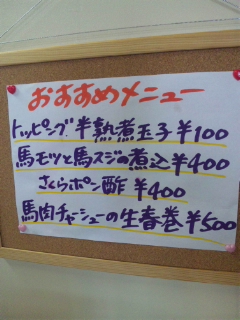 おすすめメニュー
トッピング半熟煮玉子¥100
馬モツと馬スジの煮込¥400
さくらポン酢¥400
馬肉チャーシューの生春巻¥500